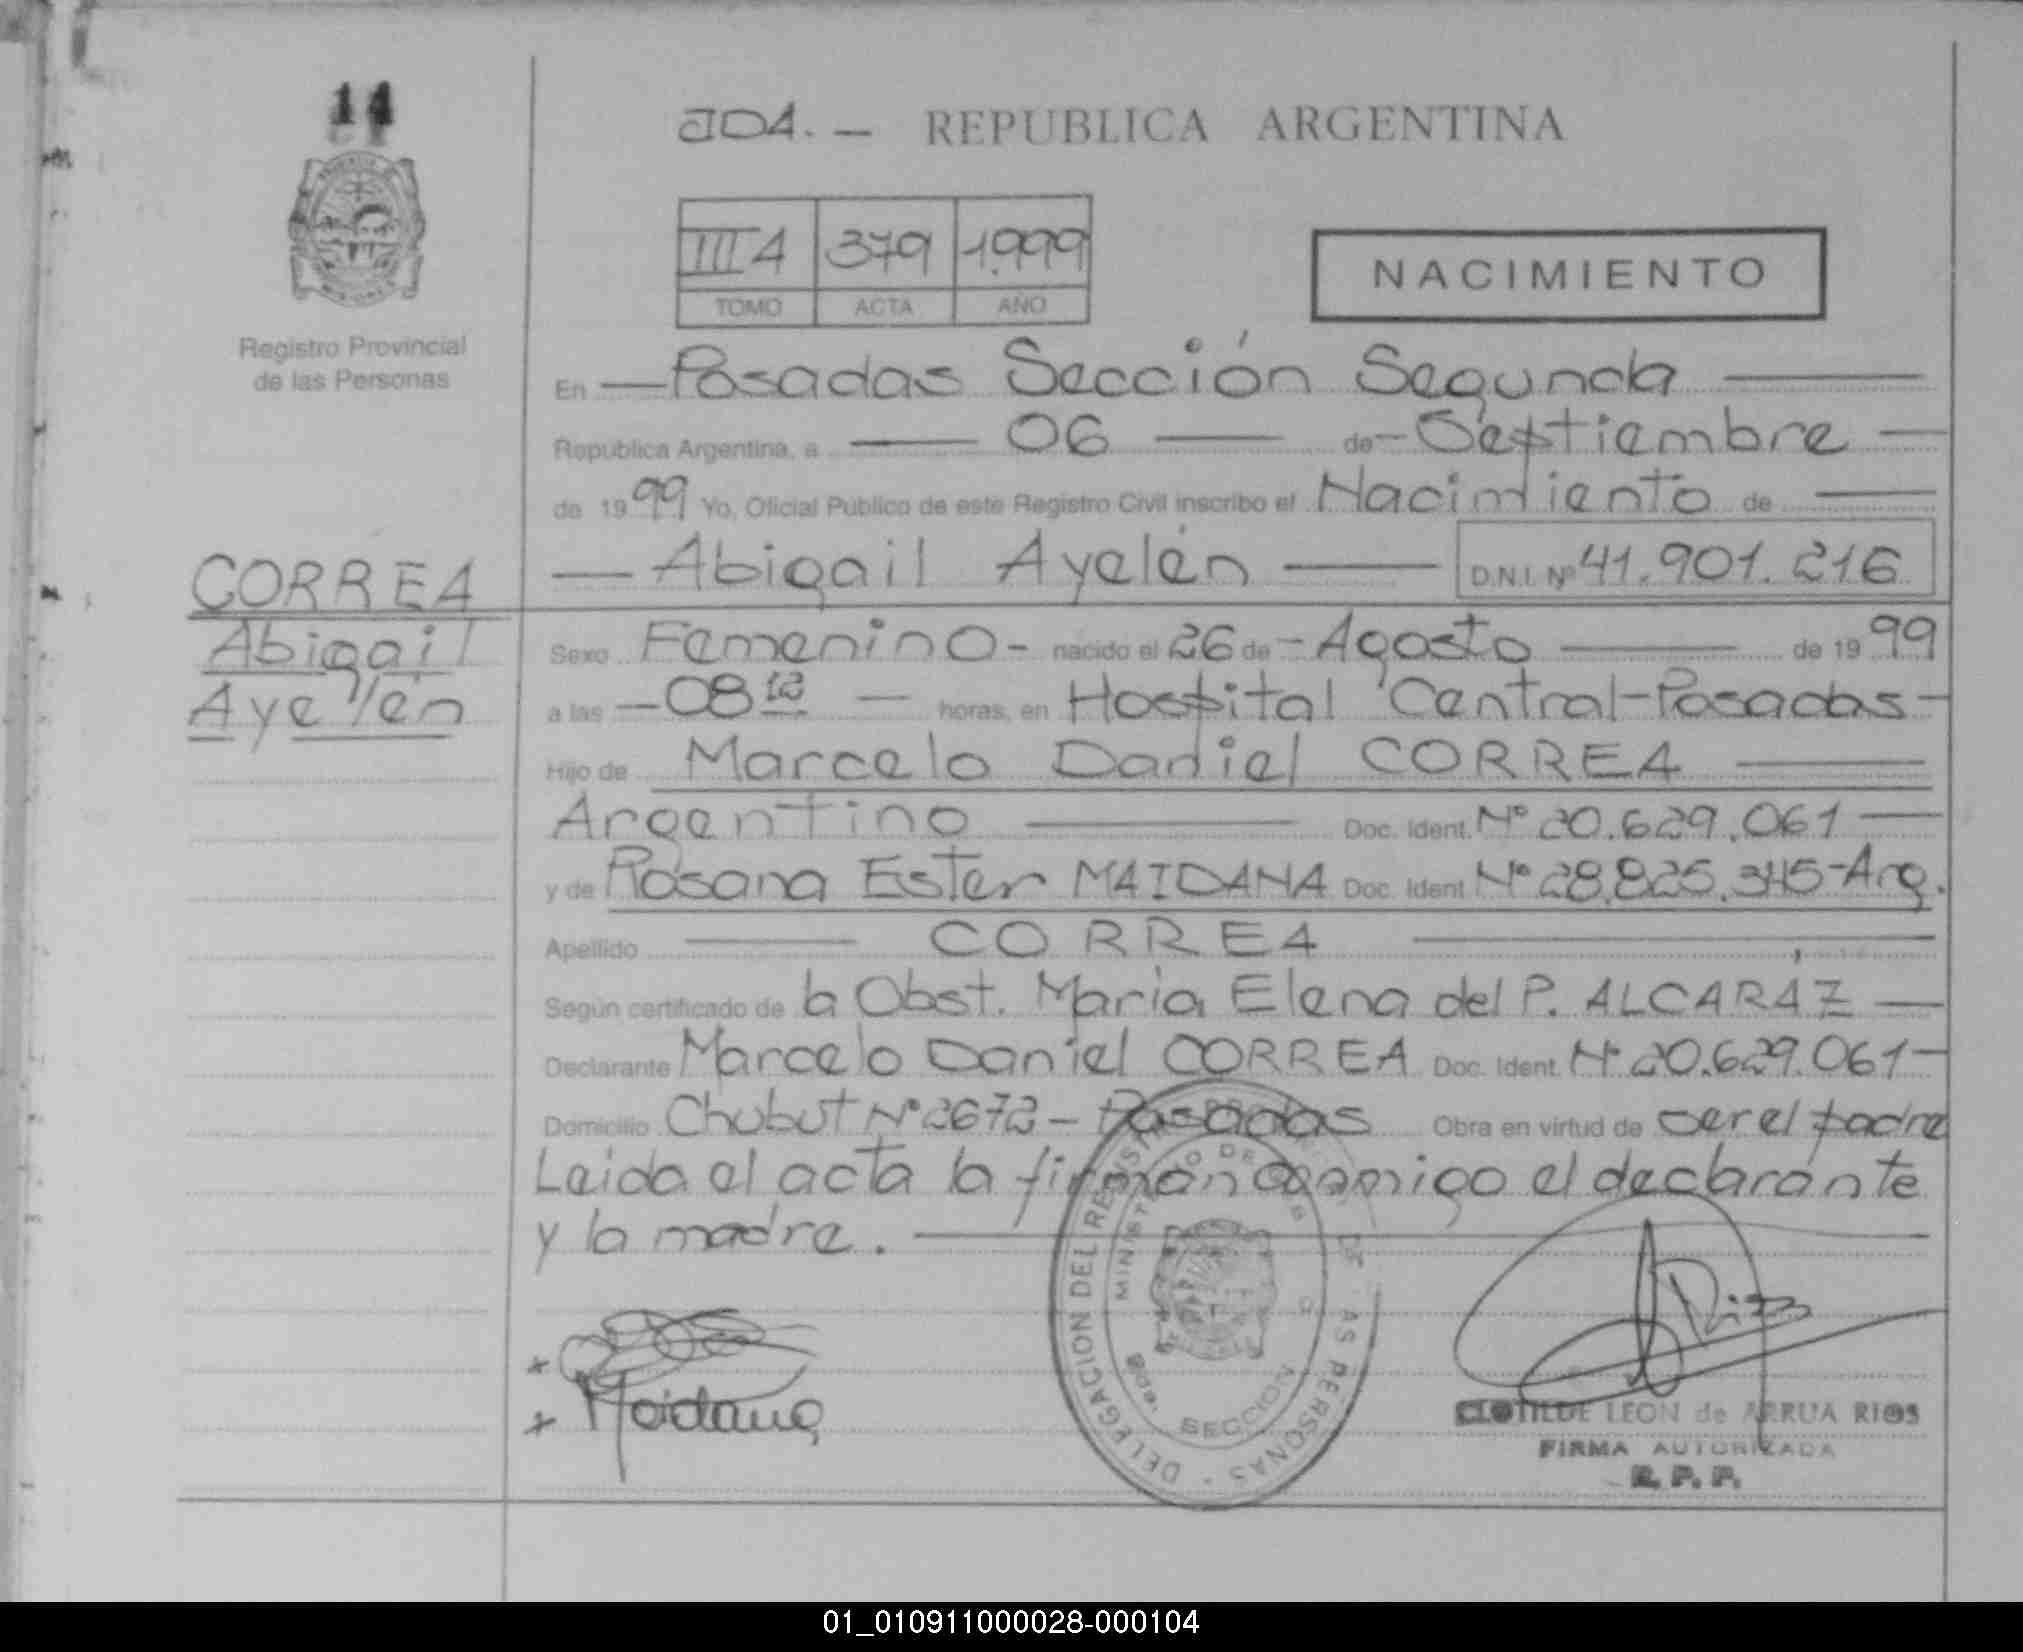 14
JD4. — REPUBLICA ARGENTINA
III 4 379 1.999
TOMO ACTA AÑO
NACIMIENTO
Registro Provincial
de las Personas
En — Posadas Sección Segunda —
Republica Argentina, a — 06 — de — Septiembre —
de 19 99 Yo, Oficial Público de este Registro Civil inscribo el Nacimiento de —
— Abigail Ayelén — D.N.I. Nº 41.901.216
CORREA
Abigail
Ayelén
Sexo Femenino - nacido el 26 de - Agosto — de 19 99
a las — 08 12 — horas, en Hospital Central - Posadas -
Hijo de Marcelo Daniel CORREA —
Argentino — Doc. Ident. Nº 20.629.061 —
y de Rosana Ester MAIDANA Doc. Ident Nº 28.825.345 - Arg.
Apellido — CORREA —
Según certificado de la Obst. Maria Elena del P. ALCARAZ —
Declarante Marcelo Daniel CORREA Doc. Ident. Nº 20.629.061 -
Domicilio Chubut Nº 2672 - Posadas Obra en virtud de ser el padre
Leida el acta la firman conmigo el declarante
y la madre. —
x
x Maidana
DELEGACION DEL REGISTRO PROVINCIAL DE LAS PERSONAS
MINISTERIO DE
SECCION
CLOTILDE LEON de ARRUA RIOS
FIRMA AUTORIZADA
R. P. P.
01_010911000028-000104